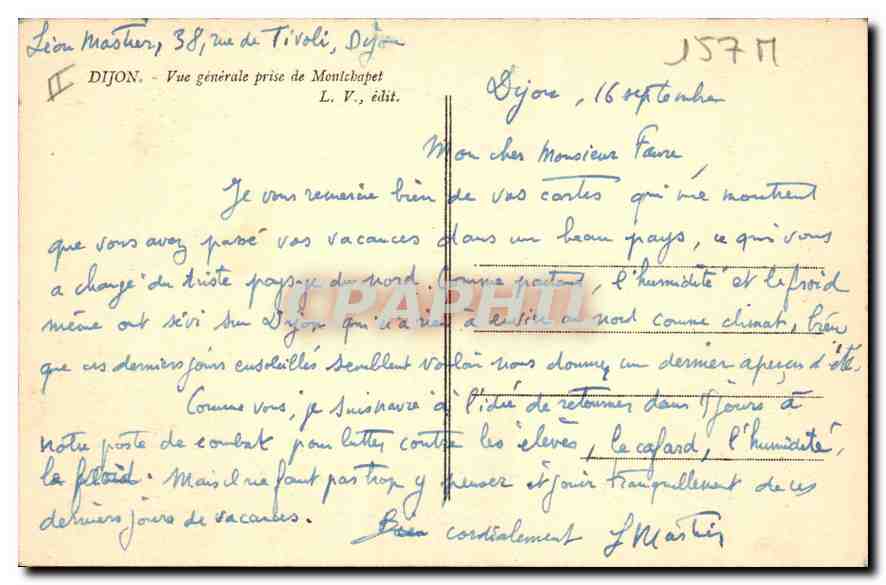 Léon Mastier, 38, rue de Tivoli, Dijon
157 M
II
DIJON. - Vue générale prise de Montchapet
L. V., édit.
Dijon, 16 septembre
Mon cher Monsieur Favre,
Je vous remercie bien de vos cartes qui me montrent
que vous avez passé vos vacances dans un beau pays, ce qui vous
a changé du triste paysage du nord. Comme partout, l'humidité et le froid
même ont sévi sur Dijon qui n'a rien à envier au nord comme climat, bien
que ces derniers jours ensoleillés semblent vouloir nous donner un dernier aperçu d'été.
Comme vous, je suis navré à l'idée de retourner dans 8 jours à
notre poste de combat pour lutter contre les élèves, le cafard, l'humidité,
le froid. Mais il ne faut pas trop y penser et jouir tranquillement de ces
derniers jours de vacances.
Bien cordialement L Mastier
CPAPHIL